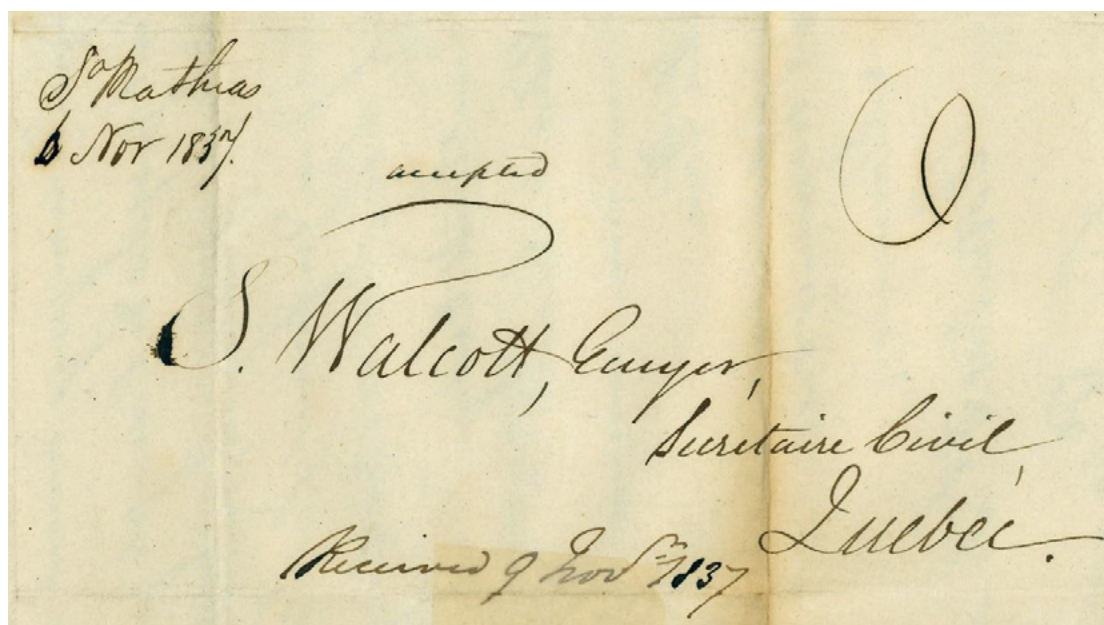 St Mathias
6 Nov 1837.
accepted
S. Walcott, Ecuyer,
Secrétaire Civil,
Québec.
Received 9 Novr 1837